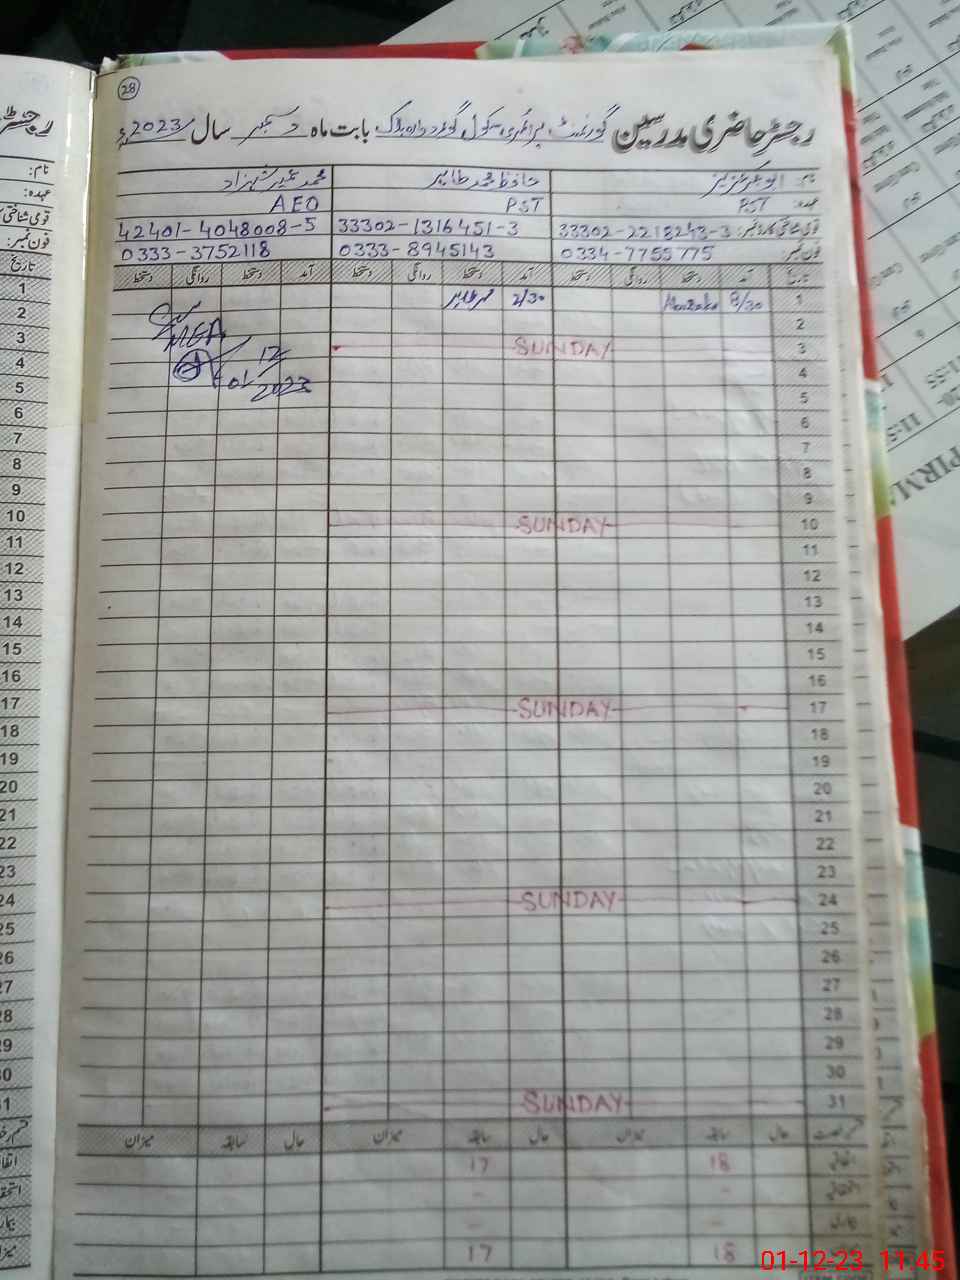 28
رجسٹر حاضری مدرسین گورنمنٹ پرائمری سکول بابت ماہ دسمبر سال 2023ء
نام: ابوبکر عزیز حافظ محمد طاہر محمد عمیر شہزاد
عہدہ: PST PST AEO
قومی شناختی کارڈ نمبر: 33302-2218243-3 33302-1316451-3 42401-4048008-5
فون نمبر: 0334-7755775 0333-8945143 0333-3752118
تاریخ آمد دستخط روانگی دستخط آمد دستخط روانگی دستخط آمد دستخط روانگی دستخط
1 8/30
2
3 SUNDAY
4
5
6
7
8
9
10 SUNDAY
11
12
13
14
15
16
17 SUNDAY
18
19
20
21
22
23
24 SUNDAY
25
26
27
28
29
30
31 SUNDAY
قسم رخصت حال سابقہ میزان حال سابقہ میزان حال سابقہ میزان
اتفاقی 18 17
استحقاقی - -
بیماری - -
میزان 18 17
01-12-23 11:45